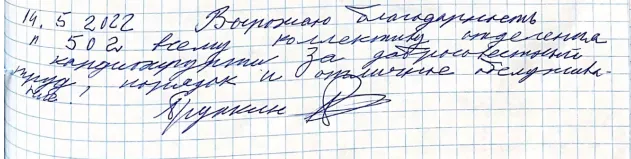 14.5 2022 Выражаю благодарность
п 502 всему коллективу отделения
кардиохирургии За добросовестный
труд, порядок и отличное обслужива-
ние. Трункин